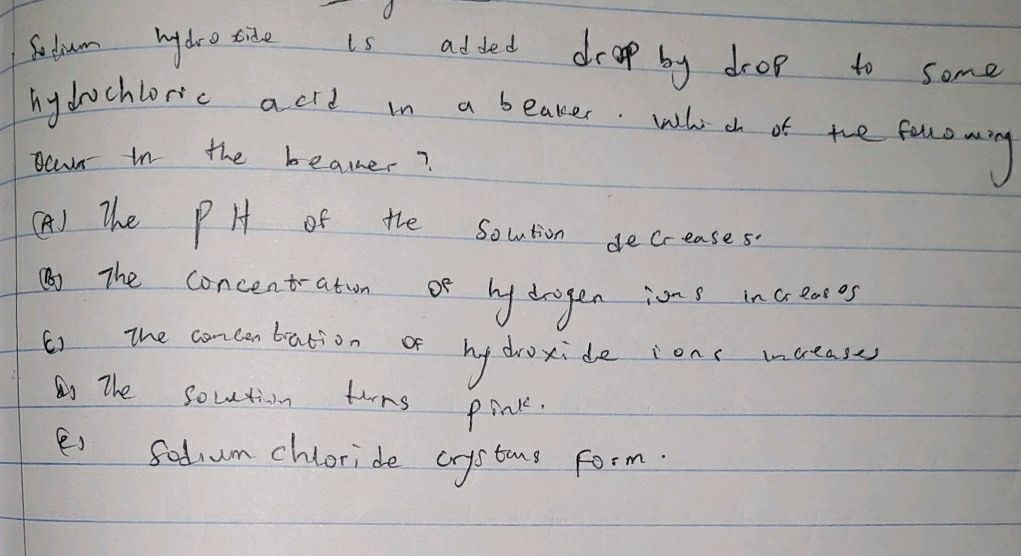 Sodium hydroxide is added drop by drop to some
hydrochloric acid in a beaker. Which of the following
occur in the beaker?
(A) The PH of the solution decreases.
(B) The concentration of hydrogen ions increases
C) The concentration of hydroxide ions increases
D) The solution turns pink.
E) Sodium chloride crystals form.